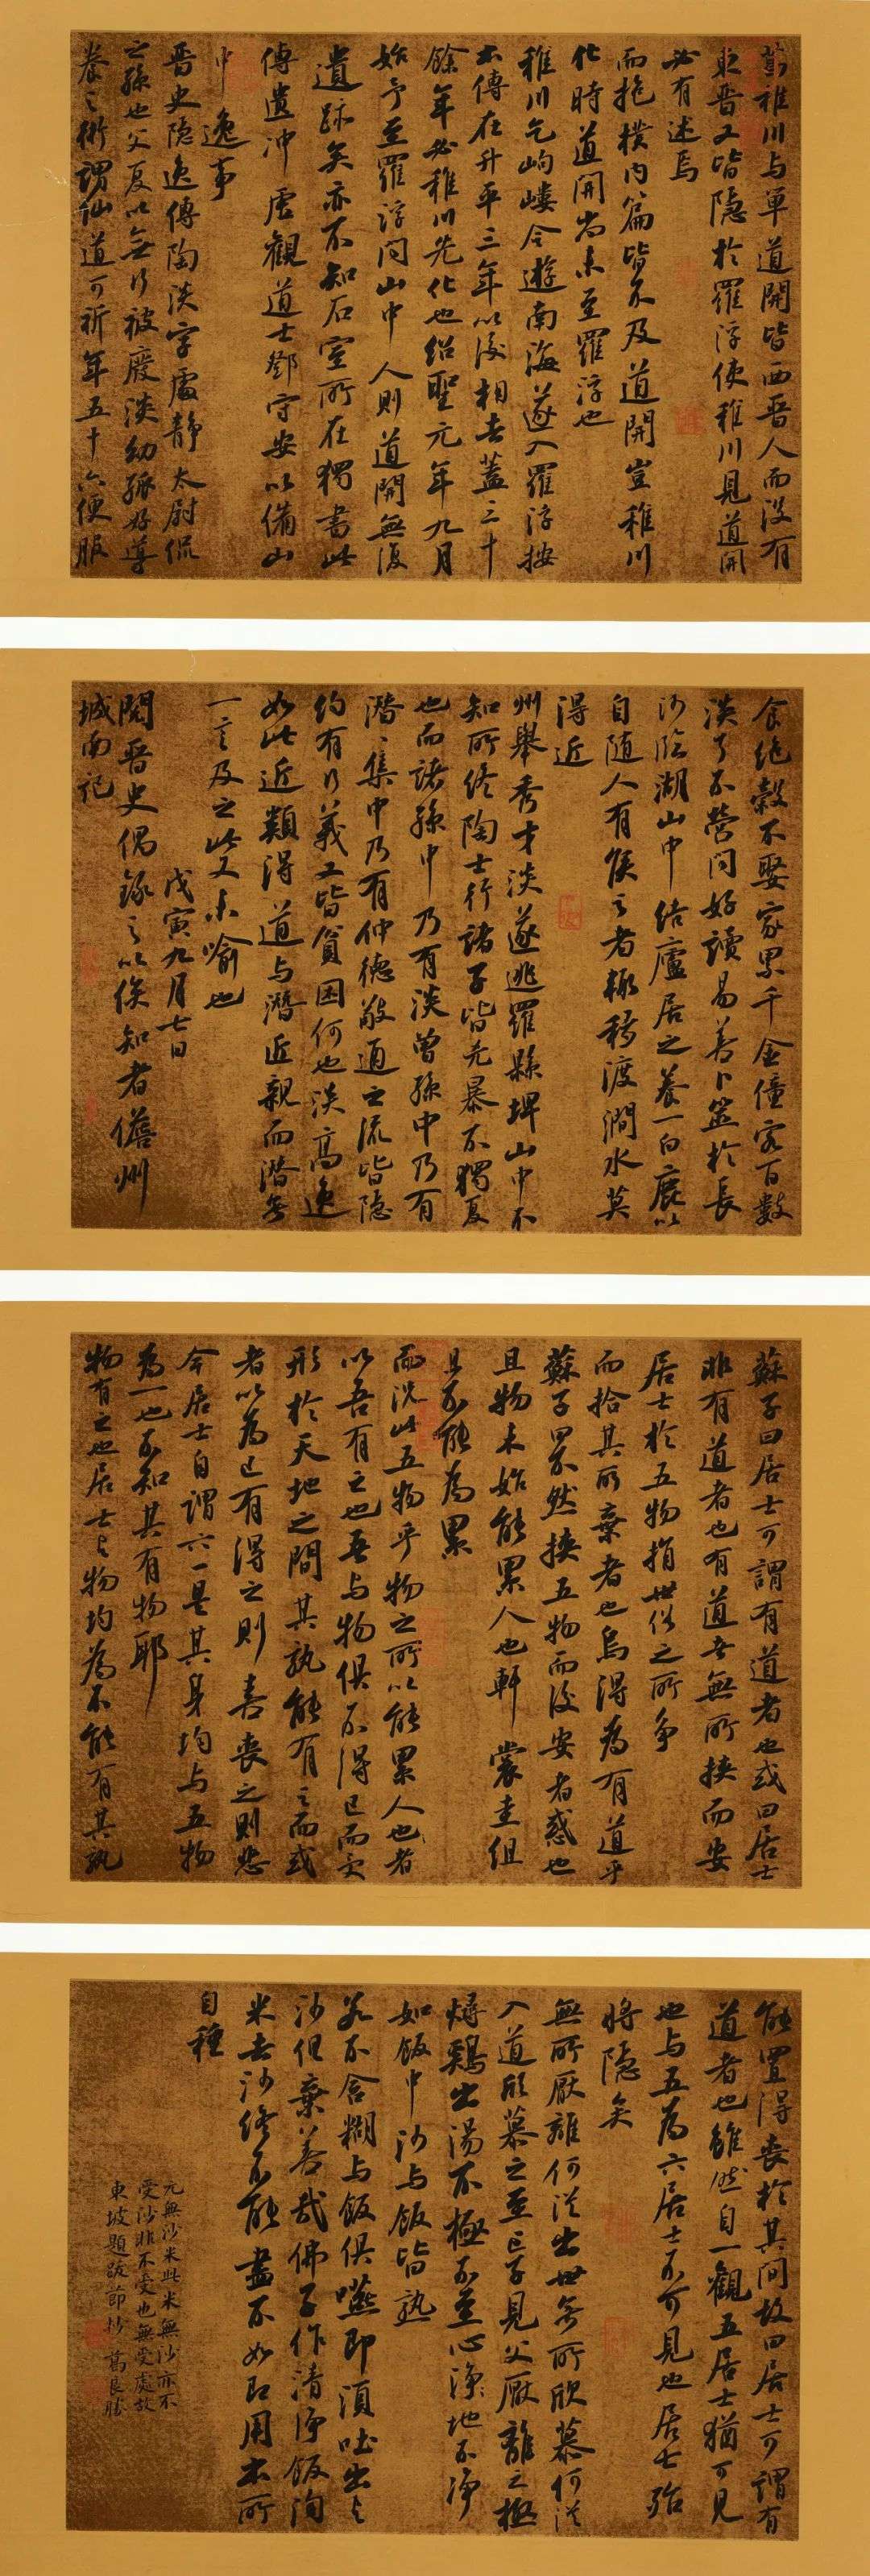 葛稚川与單道開皆西晋人而没有
東晋又皆隐於羅浮使稚川見道開
必有述焉
而抱樸内篇皆不及道開豈稚川
化時道開尚未至羅浮也
稚川乞岣嶁令遊南海遂入羅浮按
本傳在升平三年以後相去蓋三十
餘年必稚川先化也绍聖元年九月
始予至羅浮问山中人則道開無復
遺跡矣亦不知石室所在獨書此
傳遺冲虚觀道士鄧守安以備山
中逸事
晋史隐逸傳陶淡字處静太尉侃
之孫也父夏以無行被廢淡幼孤好導
養之術謂仙道可祈年五十六便服
食绝穀不娶家累千金僮客百數
淡了不營问好讀易善卜筮於長
沙临湖山中结廬居之養一白鹿以
自随人有侯之者輒移渡澗水莫
得近
州舉秀才淡遂逃羅縣埤山中不
知所终陶士行諸子皆凶暴不獨夏
也而諸孫中乃有淡曾孫中乃有
潛潛集中乃有仲德敬通之流皆隐
约有行義又皆貧困何也淡高逸
如此近類得道与潛近親而潛無
一言及之此又未喻也
戊寅九月七日
閱晋史偶錄之以俟知者儋州
城南记
蘇子曰居士可謂有道者也或曰居士
非有道者也有道者無所挾而安
居士於五物捐世俗之所争
而拾其所棄者也烏得為有道乎
蘇子曰不然挾五物而後安者惑也
且物未始能累人也軒裳圭组
且不能為累
而况此五物乎物之所以能累人也者
以吾有之也吾与物俱不得已而受
形於天地之間其孰能有之而或
者以為已有得之則喜喪之則悲
今居士自謂六一是其身均与五物
為一也不知其有物耶
物有之也居士与物均為不能有其孰
能置得喪於其间故曰居士可謂有
道者也雖然自一觀五居士猶可見
也与五為六居士不可見也居士殆
將隐矣
無所厭離何從出世無所欣慕何從
入道欣慕之至亡子見父厭離之極
燖鷄出湯不極不至心净地不净
如飯中沙与飯皆熟
若不含糊与飯俱嚥即須吐出与
沙俱棄善哉佛子作清净飯淘
米去沙终不能盡不如即用本所
自種
元無沙米此米無沙亦不
受沙非不受也無受處故
東坡題跋節抄 葛良勝